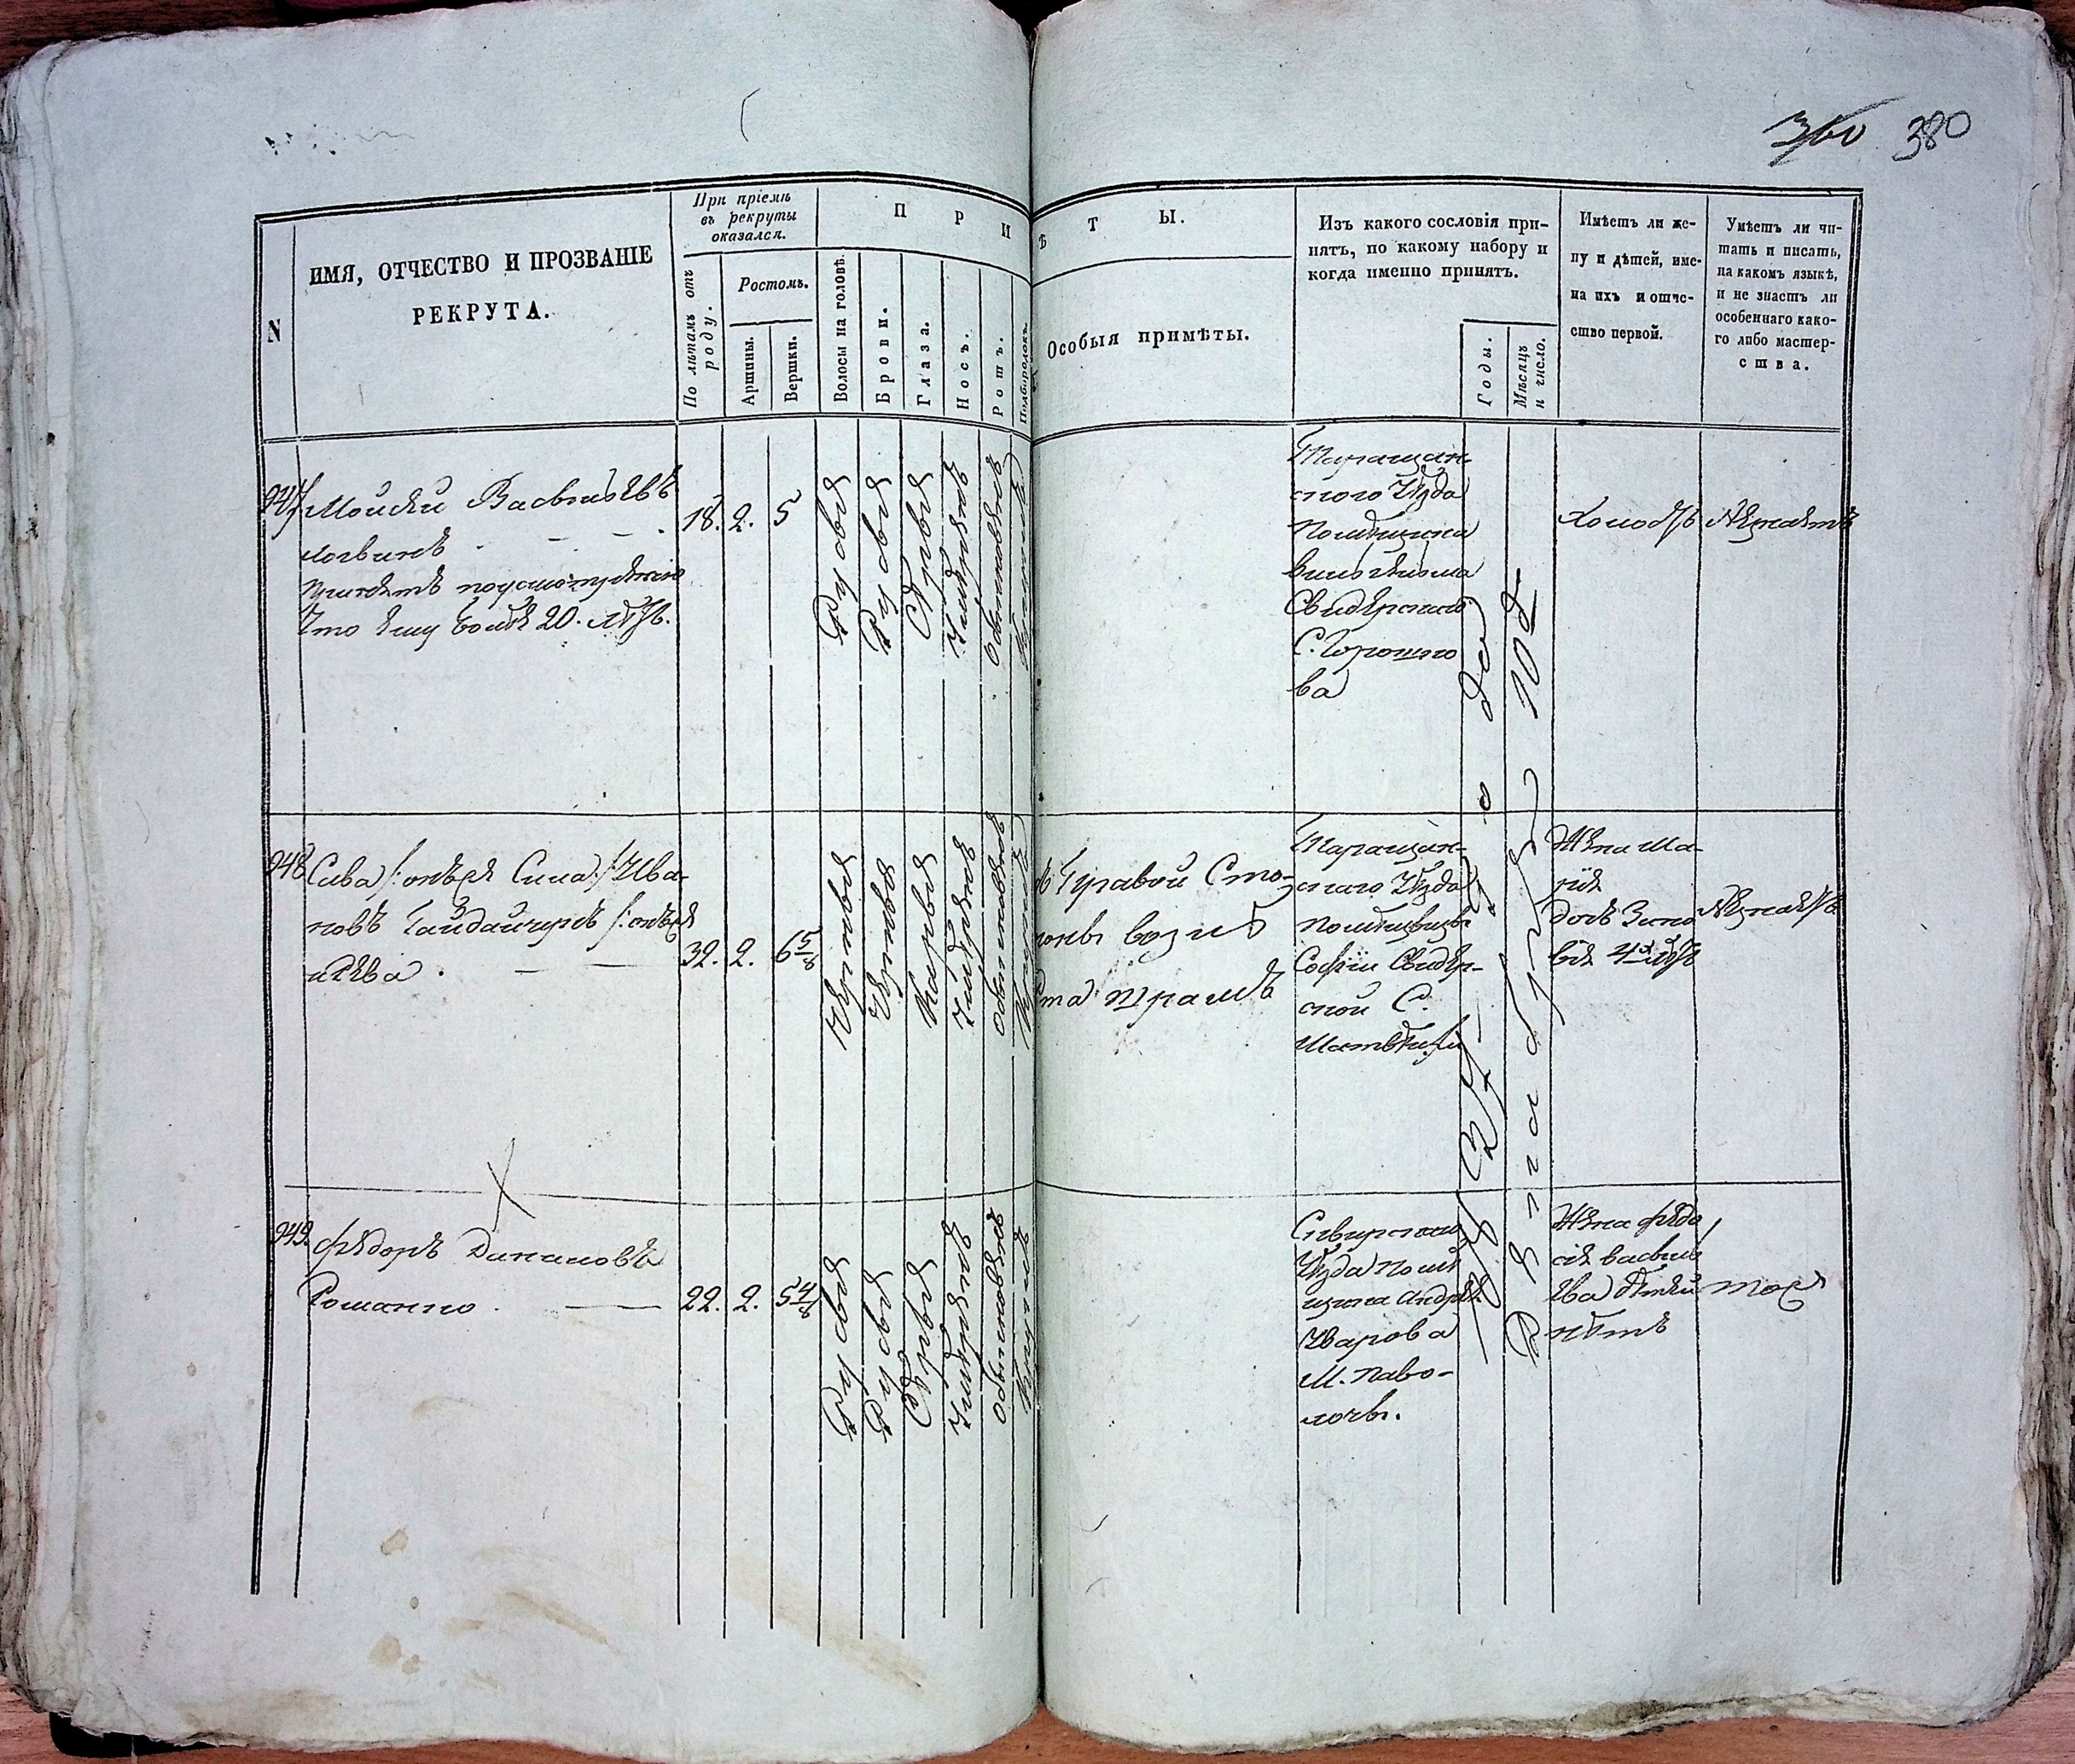 360 380
N
ИМЯ, ОТЧЕСТВО И ПРОЗВАНІЕ
РЕКРУТА.
При пріемѣ
въ рекруты
оказался.
По лѣтамъ отъ
роду.
Ростомъ.
Аршины.
Вершки.
П Р И
Волосы на головѣ.
Брови.
Глаза.
Носъ.
Ротъ.
Подбородокъ.
Ѣ Т Ы.
Особыя примѣты.
Изъ какого сословія при-
нятъ, по какому набору и
когда именно принятъ.
Годы.
Мѣсяцъ
и число.
Имѣетъ ли же-
ну и дѣтей, име-
на ихъ и отче-
ство первой.
Умѣетъ ли чи-
тать и писать,
на какомъ языкѣ,
и не знаетъ ли
особеннаго како-
го либо мастер-
ства.
947
Мойсей Васильевъ
Логвинъ
что ему болѣе 20. лѣтъ.
18. 2. 5
Русыя
Русыя
Сѣрыя
Умѣренъ
Обыкновенъ
Круглъ
Таращан-
ского уѣзда
помѣщика
Свидерского
С.
ва
Холостъ
Незнаетъ
948
Сава /: онъже Сила :/ Ива-
новъ Гайдайчукъ /: онъже
32. 2. 6 5/8
Черныя
Черныя
Карыя
Умѣренъ
Обыкновенъ
Круглъ
правой Сто-
роны возлѣ
рта шрамъ
Таращан-
ского уѣзда
помѣщицы
Софіи Свидер-
ской С.
Жена Ма-
рія
дочь Зино-
вія 4х лѣтъ
Незнаетъ
949.
Федоръ Даниловъ
Романко
22. 2. 5 4/8
Русыя
Русыя
Сѣрыя
Умѣренъ
Обыкновенъ
Круглъ
Сквирского
уѣзда помѣ-
щика Андрея
Уварова
М. Паво-
лочь.
Жена Федо-
сія Василі-
ева дѣтей
нѣтъ
тоже
Декабря 10 д